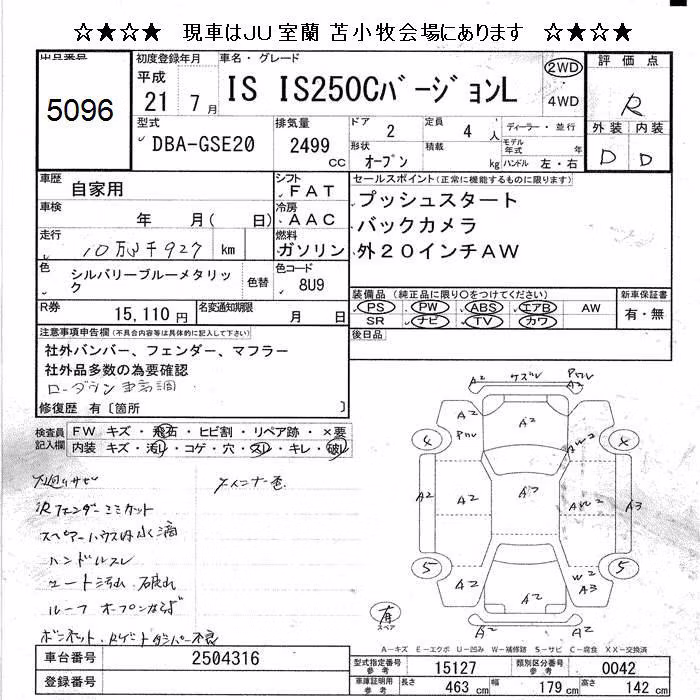 ☆★☆★ 現車はJU室蘭 苫小牧会場にあります ☆★☆★
出品番号
5096
初度登録年月
平成
21 7月
車名・グレード
IS IS250CバージョンL
2WD
4WD
評価点
R
外装 内装
D D
型式
DBA-GSE20
排気量
2499
CC
ドア
2
定員
4人
ディーラー・並行
形状
オープン
積載
kg
モデル年式
年
ハンドル 左・右
車歴
自家用
シフト
FAT
車検
年 月( 日)
冷房
AAC
走行
km
燃料
ガソリン
色
シルバリーブルーメタリック
色替
色コード
8U9
R券
15,110円
名変通知期限
月 日
セールスポイント(正常に機能するものに限ります)
プッシュスタート
バックカメラ
外20インチAW
装備品 (純正品に限り○をつけてください)
PS PW ABS エアB AW
SR ナビ TV カワ
新車保証書
有・無
後日品
注意事項申告欄(不具合内容等は具体的に記入して下さい)
社外バンパー、フェンダー、マフラー
社外品多数の為要確認
ローダウン 車高調
修復歴 有〔箇所 〕
検査員記入欄
FW キズ・飛石・ヒビ割・リペア跡・×要
内装 キズ・汚れ・コゲ・穴・スレ・キレ・破レ
下廻りサビ
Rフェンダーミミカット
スペアーハウス内水滴
ハンドルスレ
シート汚れ 破れ
ルーフ オープンならず
ボンネット、Rゲートダンパー不良
車台番号
2504316
登録番号
A2 ケズレ A2
A2 A2
4 A2 ×
A2 A2 A2 AW2 A3
5 A2 W2 A3 5
A2
A2 A2
有
スペア
A-キズ E-エクボ U-凹み W-補修跡 S-サビ C-腐食 XX-交換済
型式指定番号
参考
15127
類別区分番号
参考
0042
車庫証明用
参考
長さ
463 cm
幅
179 cm
高さ
142 cm